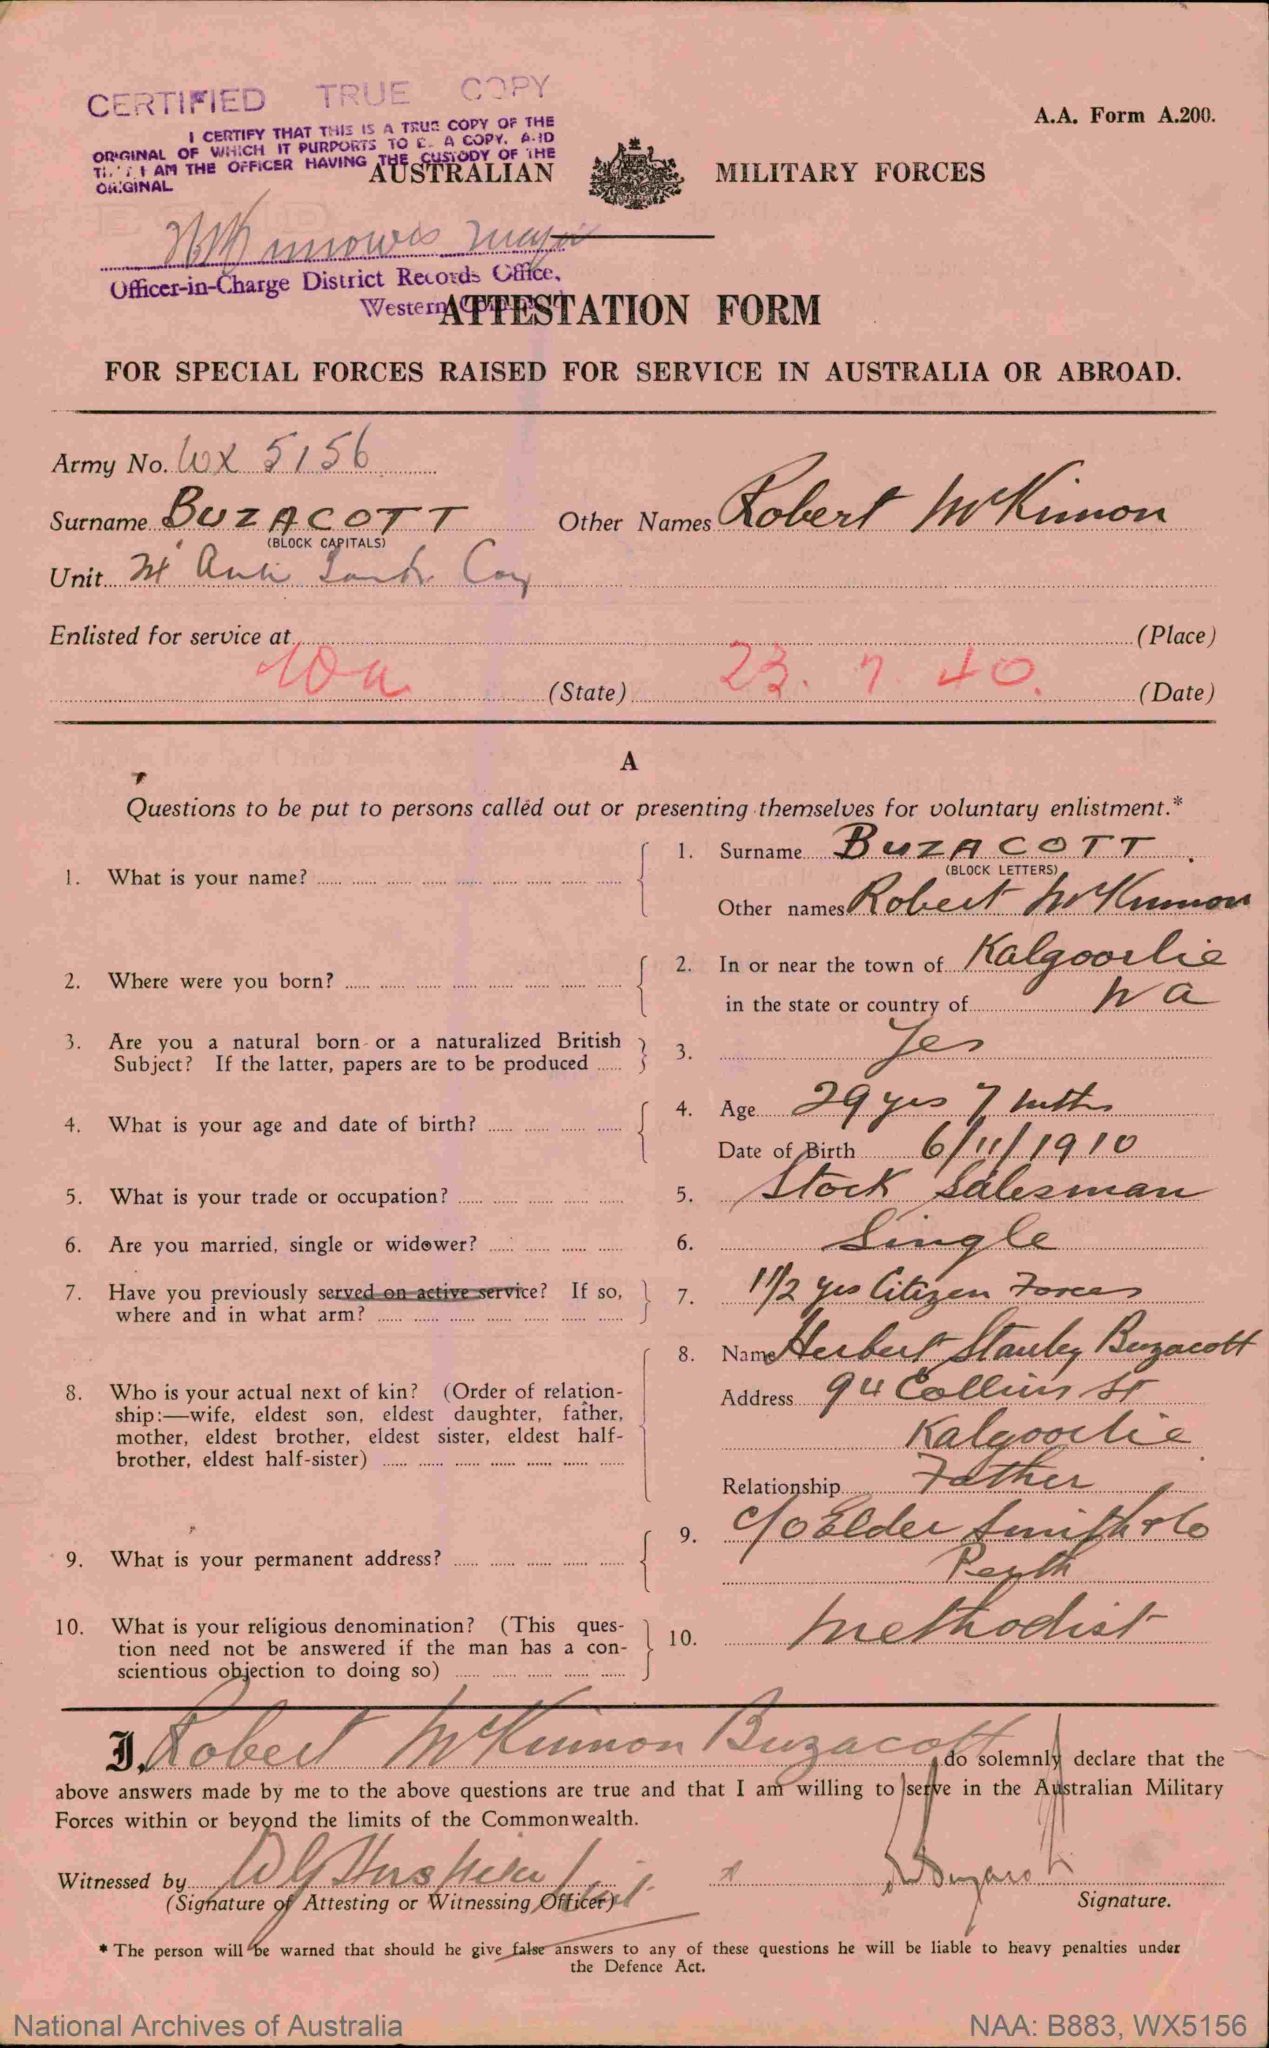 CERTIFIED TRUE COPY
I CERTIFY THAT THIS IS A TRUE COPY OF THE
ORIGINAL OF WHICH IT PURPORTS TO BE A COPY, AND
THAT I AM THE OFFICER HAVING THE CUSTODY OF THE
ORIGINAL
A.A. Form A.200.
AUSTRALIAN MILITARY FORCES
Major
Officer-in-Charge District Records Office,
Western
ATTESTATION FORM
FOR SPECIAL FORCES RAISED FOR SERVICE IN AUSTRALIA OR ABROAD.
Army No. WX 5156
Surname BUZACOTT Other Names Robert McKinnon
(BLOCK CAPITALS)
Unit Anti Tank Coy
Enlisted for service at (Place)
Wa (State) 23.7.40. (Date)
A
Questions to be put to persons called out or presenting themselves for voluntary enlistment.*
1. What is your name?
1. Surname BUZACOTT
(BLOCK LETTERS)
Other names Robert McKinnon
2. Where were you born?
2. In or near the town of Kalgoorlie
in the state or country of W A
3. Are you a natural born or a naturalized British
Subject? If the latter, papers are to be produced
3. Yes
4. What is your age and date of birth?
4. Age 29 yrs 7 mths
Date of Birth 6/11/1910
5. What is your trade or occupation?
5. Stock Salesman
6. Are you married, single or widower?
6. Single
7. Have you previously served on active service? If so,
where and in what arm?
7. 1 1/2 yrs Citizen Forces
8. Who is your actual next of kin? (Order of relation-
ship:—wife, eldest son, eldest daughter, father,
mother, eldest brother, eldest sister, eldest half-
brother, eldest half-sister)
8. Name Herbert Stanley Buzacott
Address 94 Collins St
Kalgoorlie
Relationship Father
9. What is your permanent address?
9. c/o Elder Smith & Co
Perth
10. What is your religious denomination? (This ques-
tion need not be answered if the man has a con-
scientious objection to doing so)
10. Methodist
I, Robert McKinnon Buzacott do solemnly declare that the
above answers made by me to the above questions are true and that I am willing to serve in the Australian Military
Forces within or beyond the limits of the Commonwealth.
Witnessed by
(Signature of Attesting or Witnessing Officer)
Signature.
* The person will be warned that should he give false answers to any of these questions he will be liable to heavy penalties under
the Defence Act.
National Archives of Australia
NAA: B883, WX5156